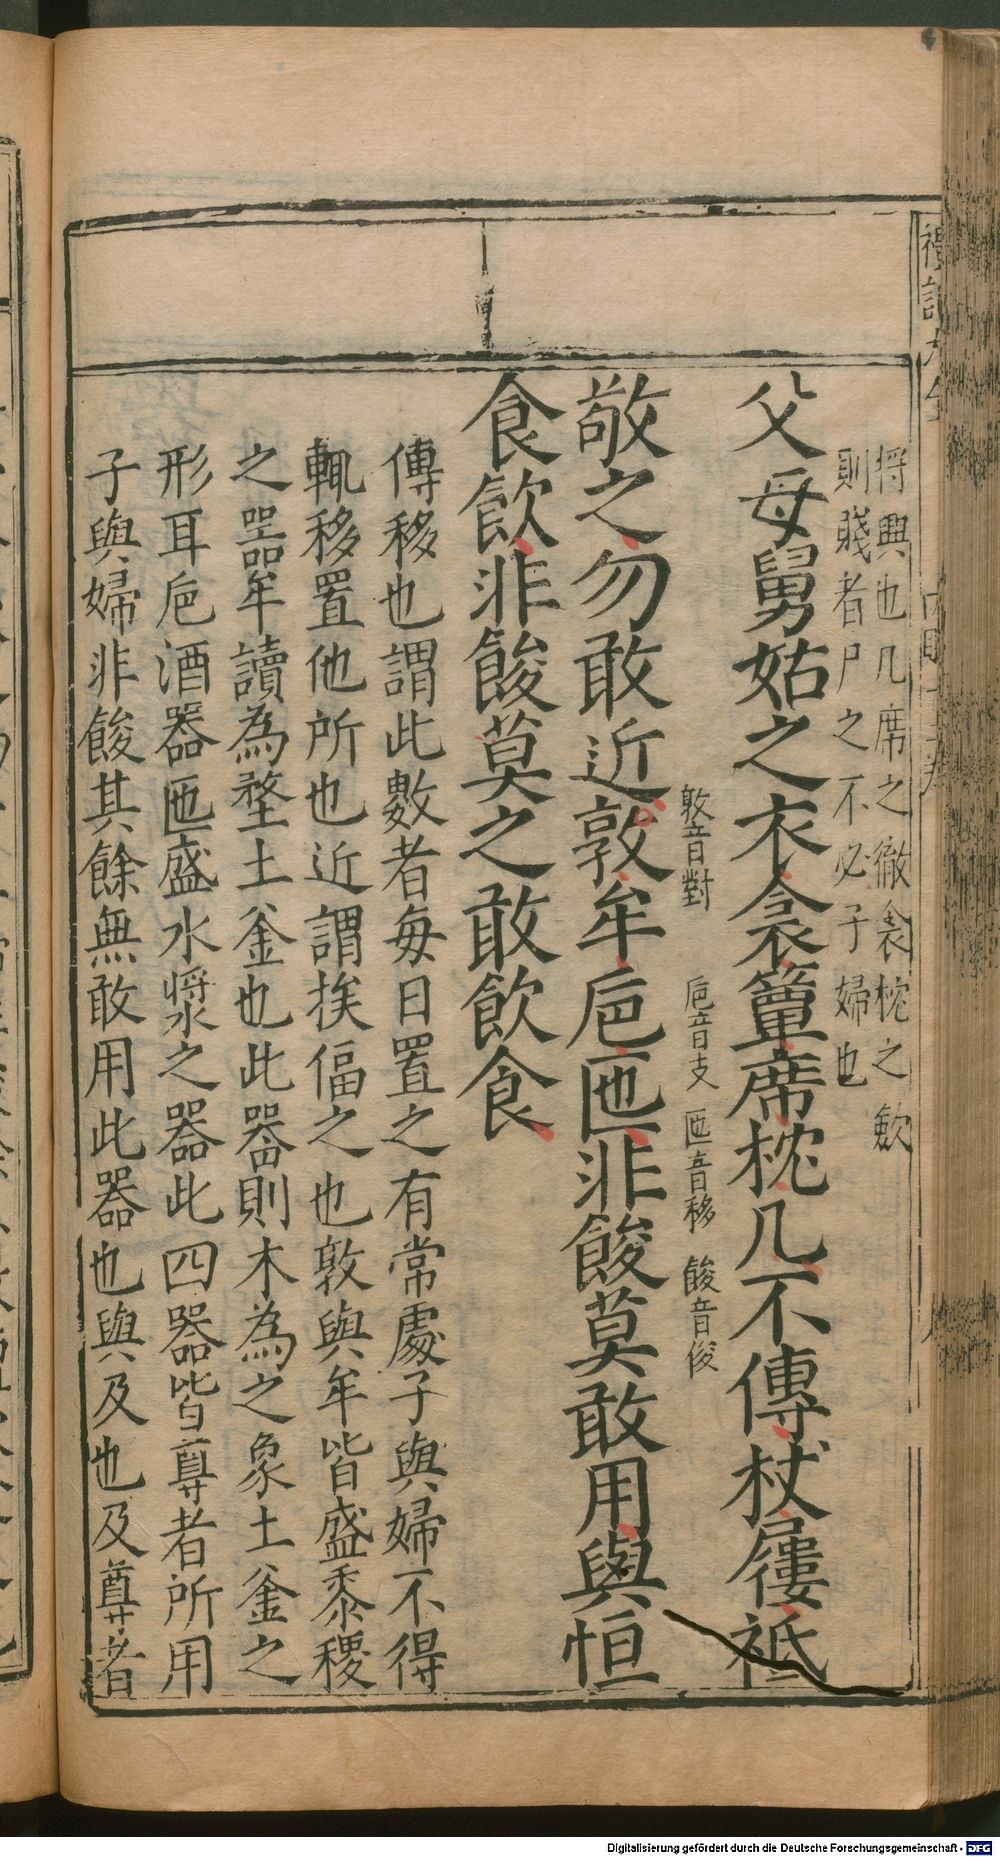 將興也几席之徹衾枕之斂
則賤者尸之不必子婦也
父母舅姑之衣衾簟席枕几不傳杖屨祗
敬之勿敢近敦牟巵匜非餕莫敢用與恒
敦音對 巵音支 匜音移 餕音俊
食飲非餕莫之敢飲食
傳移也謂此數者每日置之有常處子與婦不得
輒移置他所也近謂挨偪之也敦與牟皆盛黍稷
之器牟讀為堥土釜也此器則木為之象土釜之
形耳巵酒器匜盛水漿之器此四器皆尊者所用
子與婦非餕其餘無敢用此器也與及也及尊者
Digitalisierung gefördert durch die Deutsche Forschungsgemeinschaft - DFG